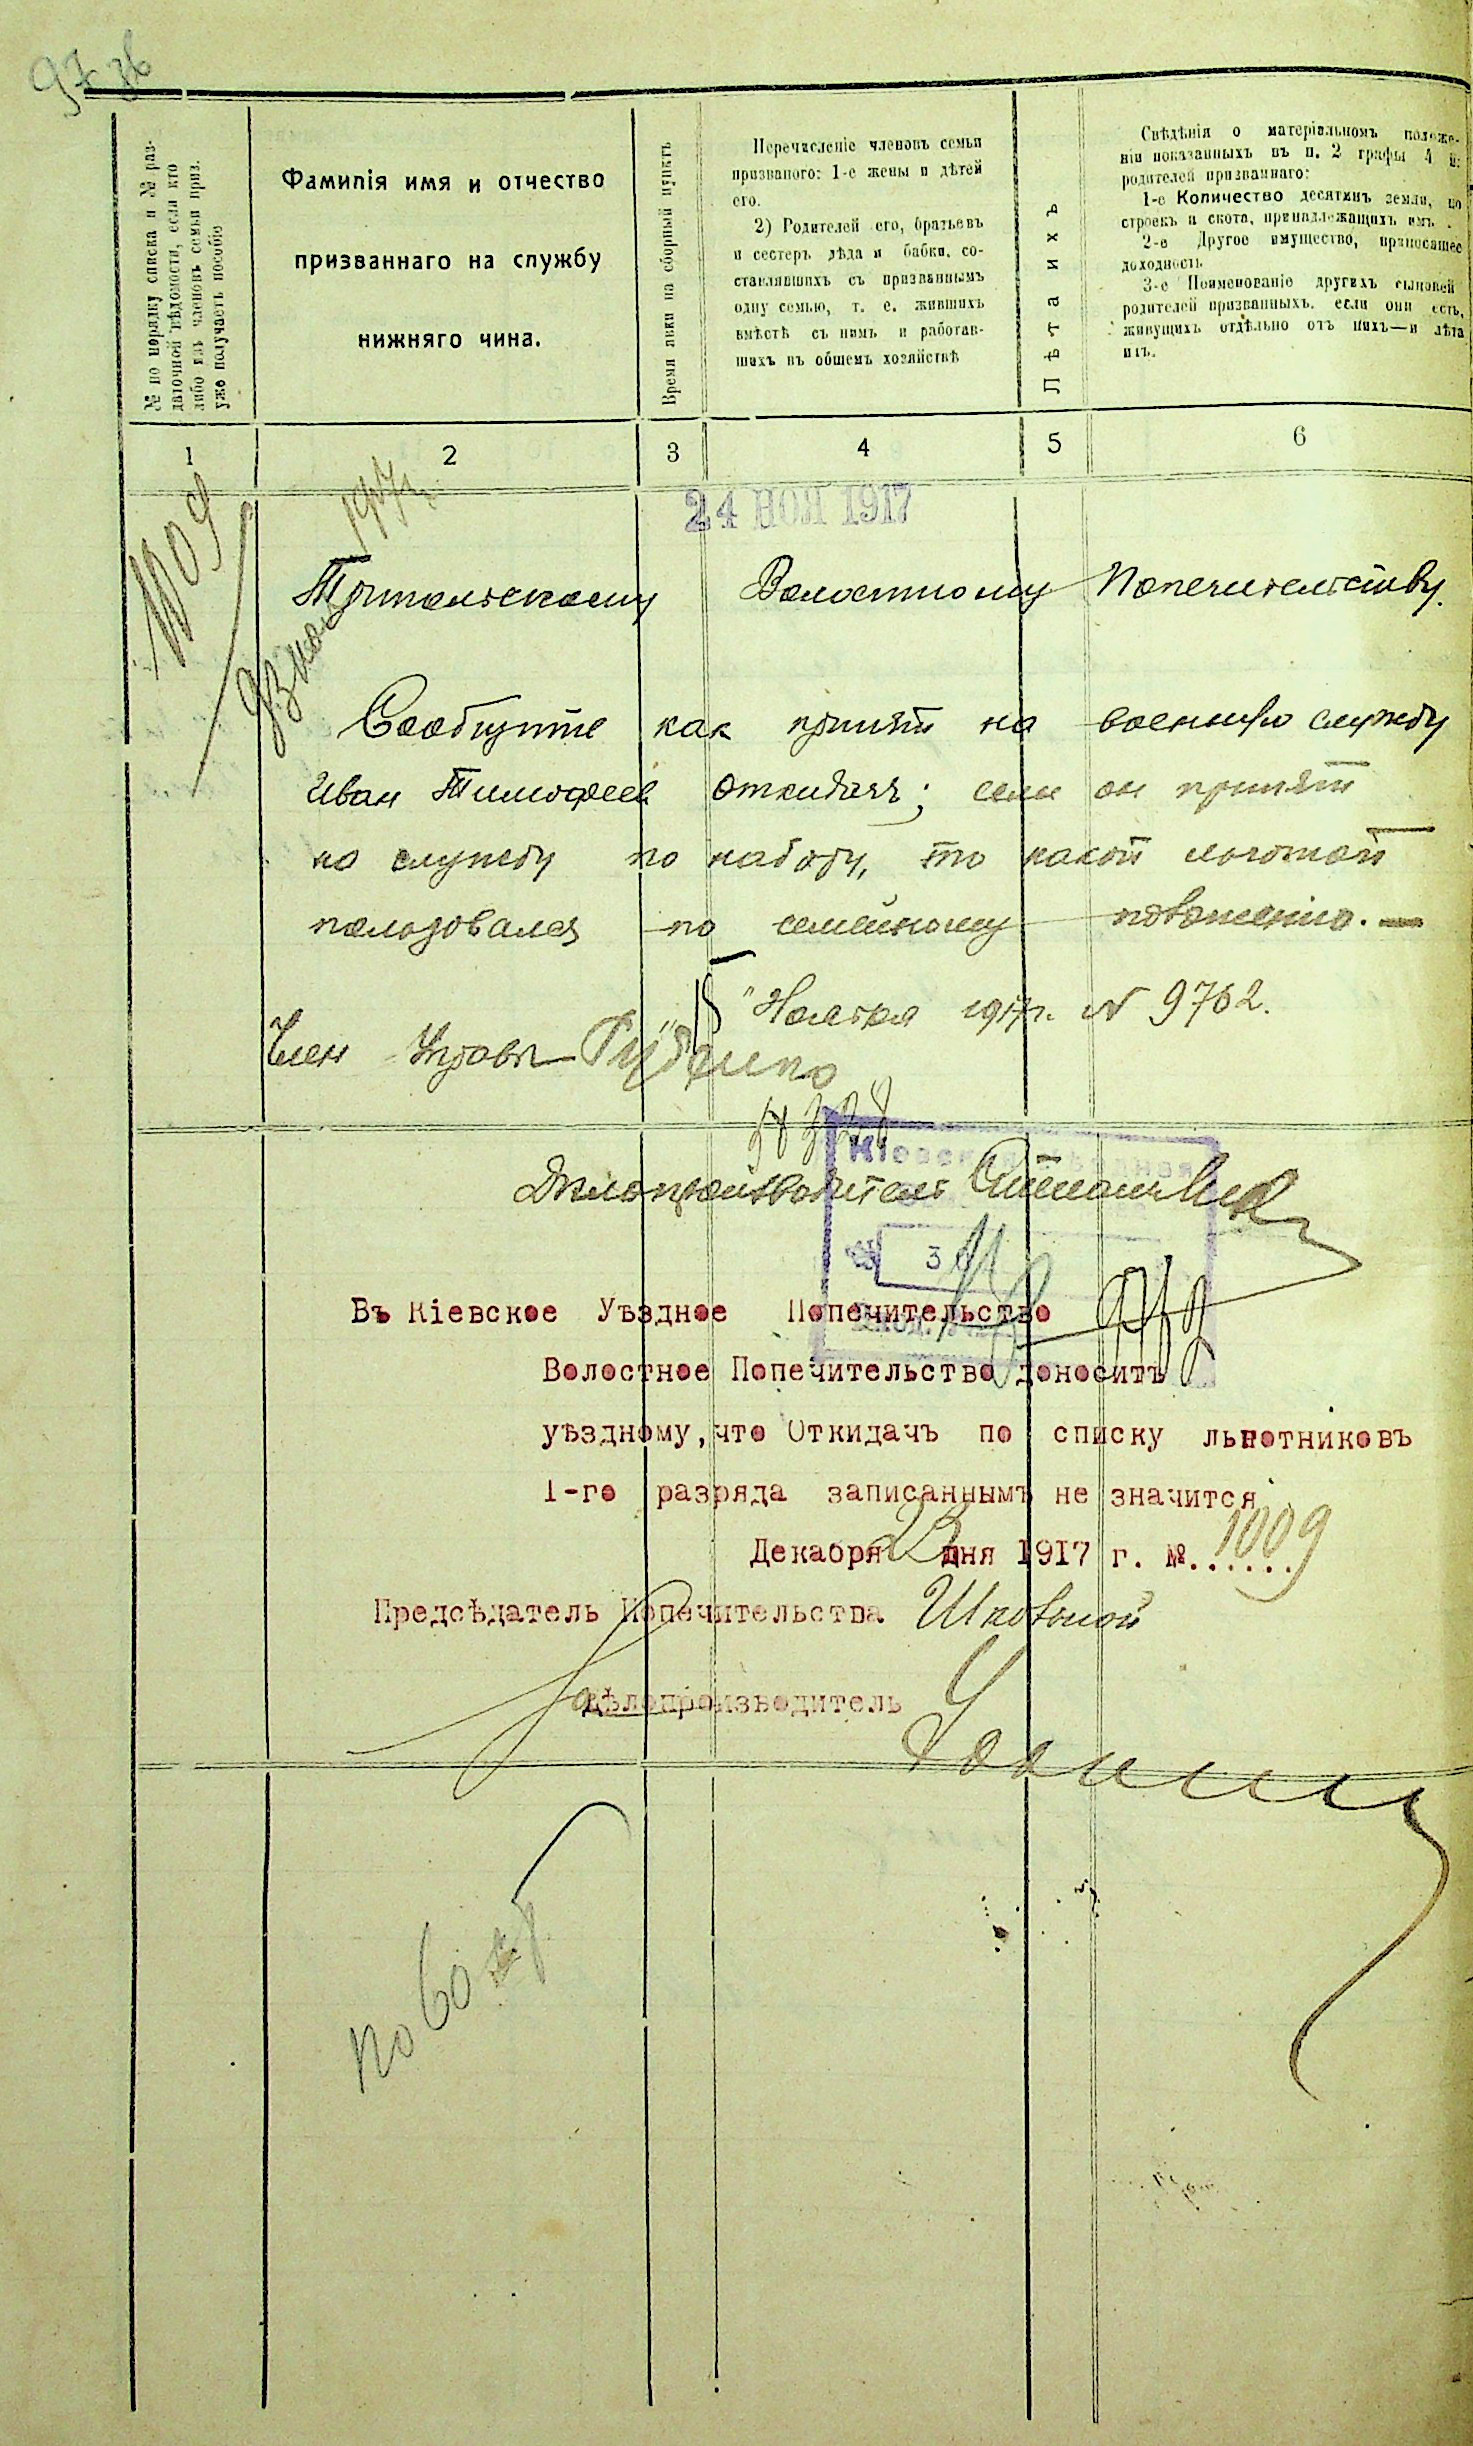 97 зв
№ по порядку списка и № раз-
даточной вѣдомости, если кто
либо изъ членовъ семьи приз.
уже получаетъ пособіе
Фамилія имя и отчество
призваннаго на службу
нижняго чина.
Время явки на сборный пунктъ
Перечисленіе членовъ семьи
призваного: 1-е жены и дѣтей
его.
2) Родителей его, братьевъ
и сестеръ дѣда и бабки, со-
ставлявшихъ съ призваннымъ
одну семью, т. е. жившихъ
вмѣстѣ съ нимъ и работав-
шихъ въ общемъ хозяйствѣ
Лѣта ихъ
Свѣдѣнія о матеріальномъ положе-
ніи показанныхъ въ п. 2 графы 4 й:
родителей призваннаго:
1-е Количество десятинъ земли, по
строекъ и скота, принадлежащихъ имъ.
2-е Другое имущество, приносящее
доходность
3-е Поименованіе другихъ сыновей
родителей призванныхъ, если они есть,
живущихъ отдѣльно отъ нихъ—и лѣта
ихъ.
1 2 3 4 5 6
24 НОЯ 1917
1009
23 ноя 1917 г.
Трипольскому Волостному Попечительству.
Сообщите как принят на военную службу
Иван Тимофеев Откидач; если он принят
на службу по набору, то какой льготой
пользовался по семейному положению.
" Ноября 1917 г. N 9762.
Член Управы Руденко
Дѣлопроизводитель
Кіевская Уѣздная
Въ Кіевское Уѣздное Попечительство
Волостное Попечительство доноситъ
уѣздному, что Откидачъ по списку льготниковъ
1-го разряда записаннымъ не значится
Декабря 23 дня 1917 г. №...... 1009
Предсѣдатель Попечительства Шковыой
За дѣлопроизводитель
по 60